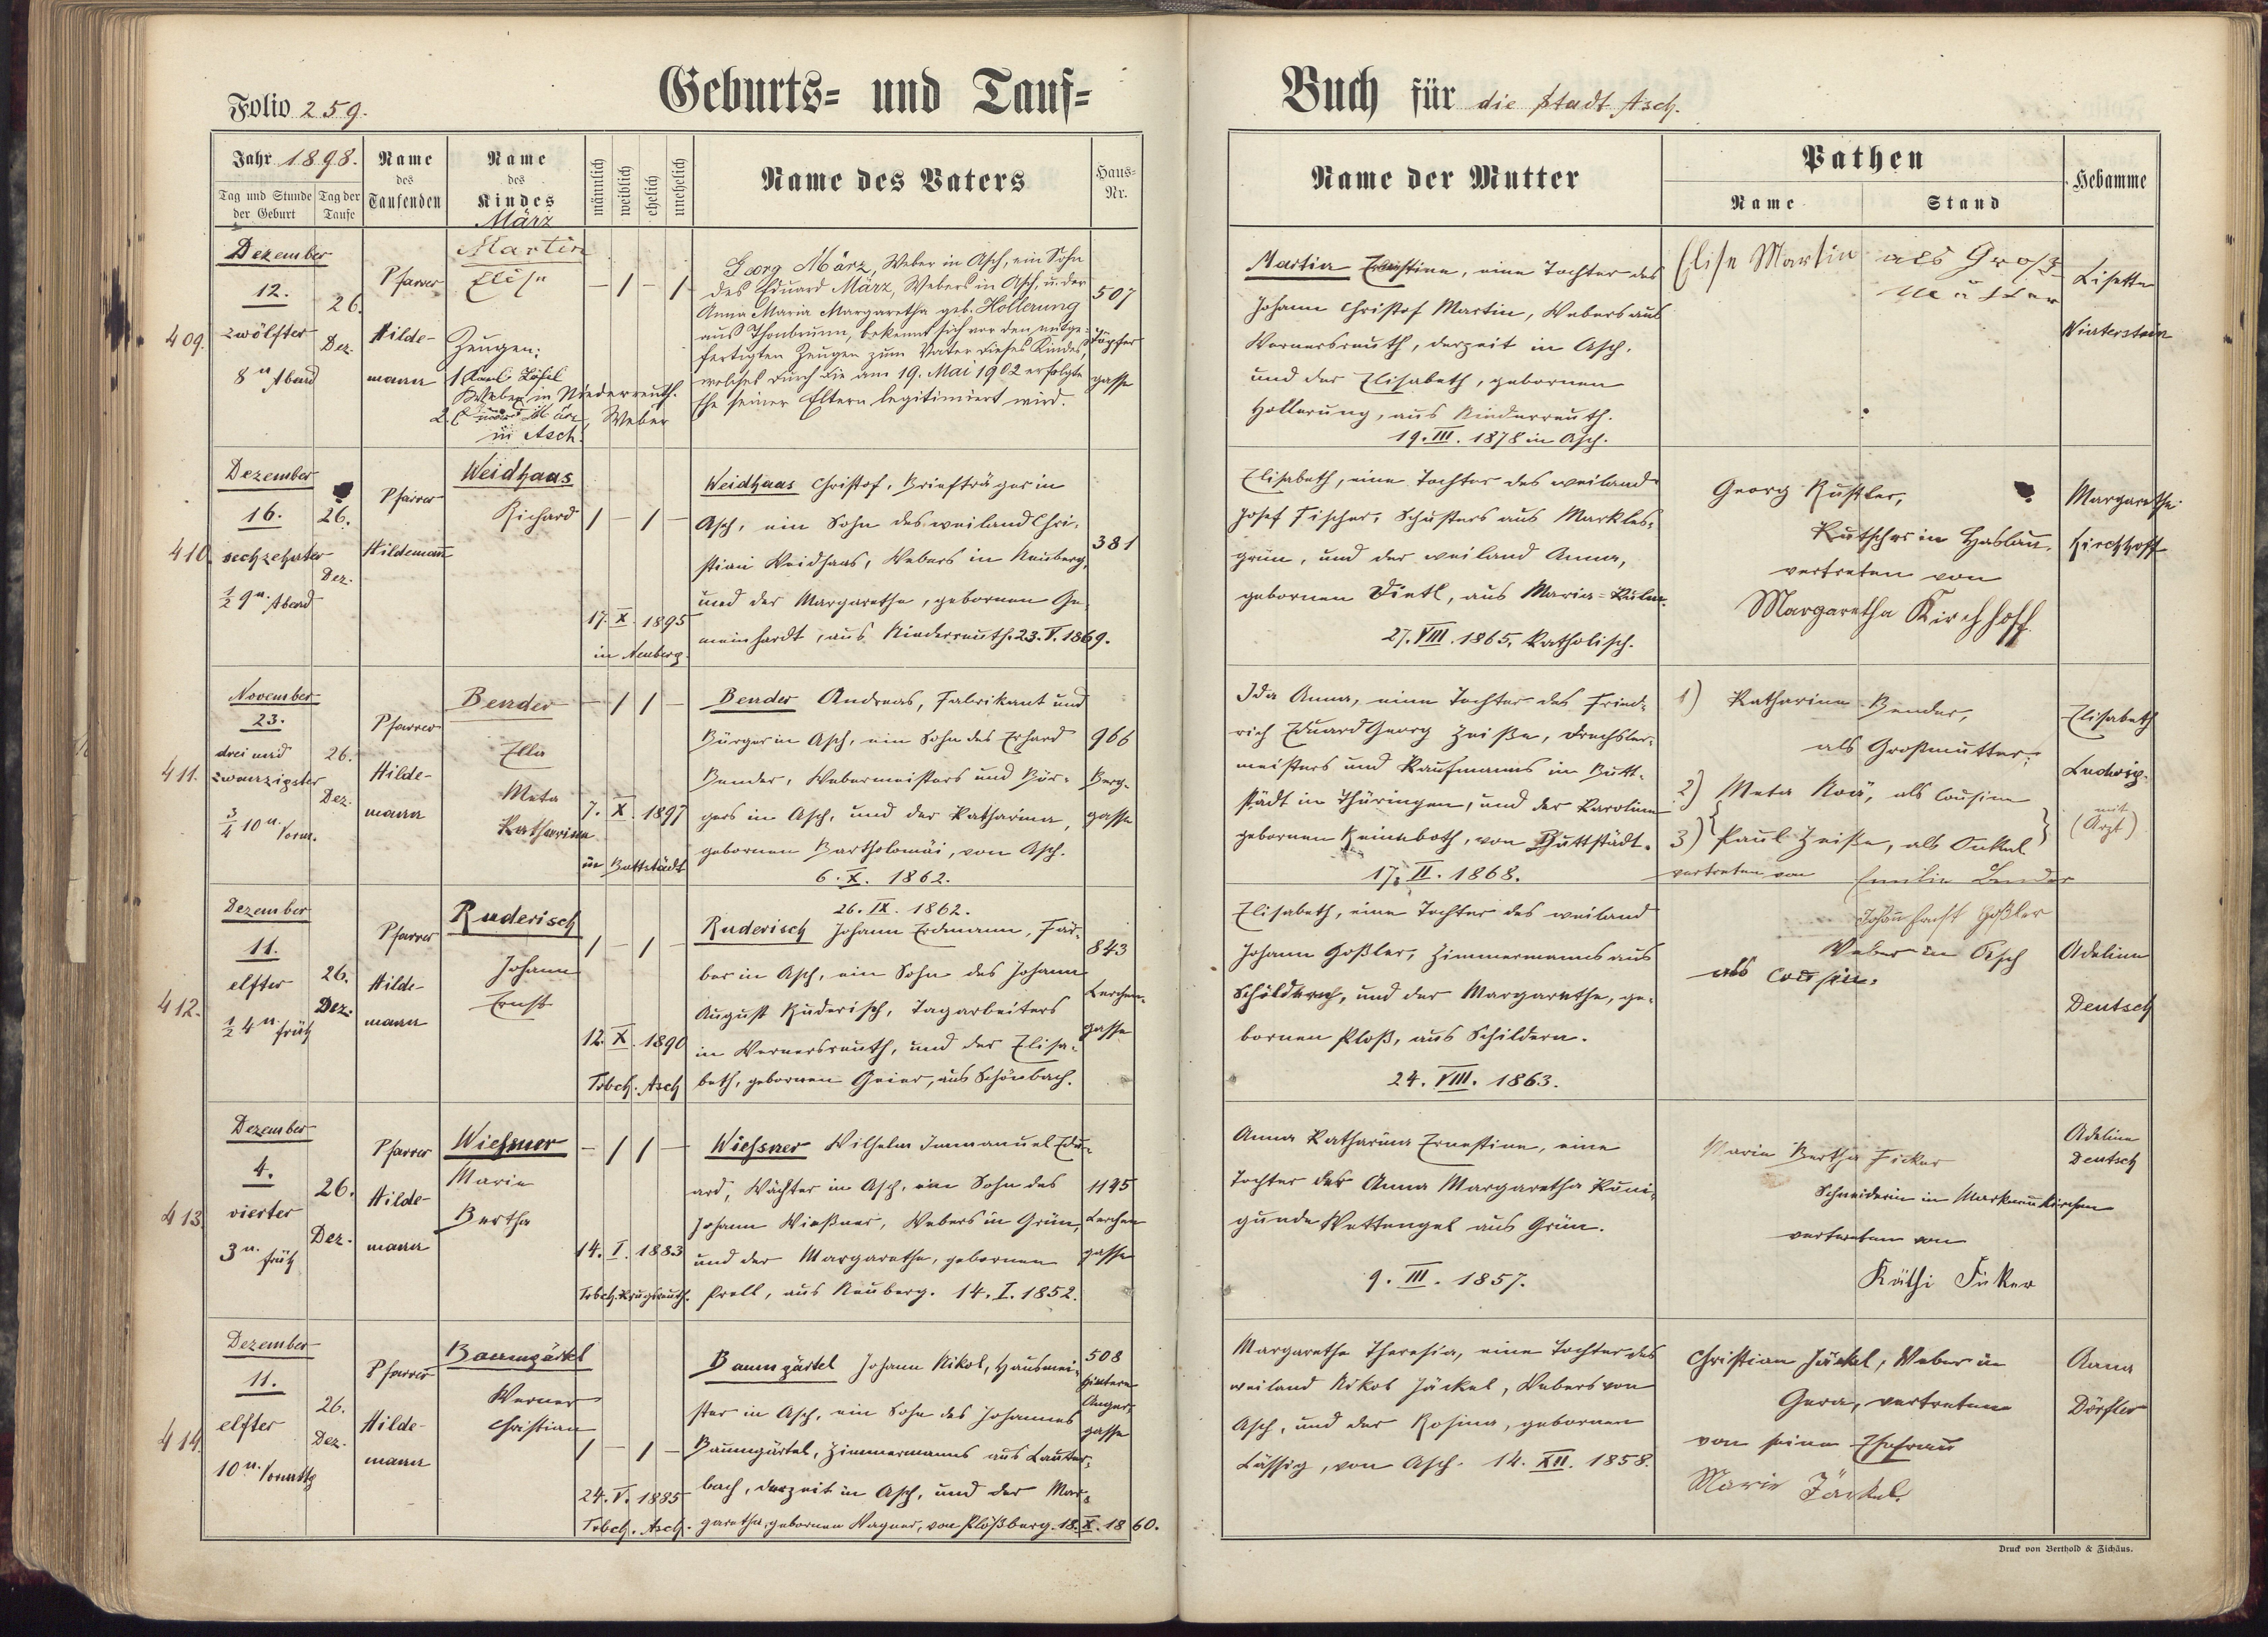 Folio 259.
Geburts= und Tauf=
Buch für die Stadt Asch.
Jahr 1898.
Tag und Stunde der Geburt
Tag der Taufe
Name des Taufenden
Name des Kindes
männlich
weiblich
ehelich
unehelich
Name des Vaters
Haus= Nr.
Name der Mutter
Pathen
Name
Stand
Hebamme
409.
Dezember
12.
zwölfter
8 u Abend
26.
Dez.
Pfarrer
Hilde-
mann
März
Martin
Elise
Zeugen:
1 Karl
Weber in Niederreuth.
2. Eduard März, Weber
in Asch.
– / – /
Georg März, Weber in Asch, ein Sohn
des Eduard März, Webers in Asch, u. der
Anna Maria Margaretha geb. Hollerung
aus Thonbrunn, bekennt sich vor den mitge-
fertigten Zeugen zum Vater dieses Kindes,
welches durch die am 19. Mai 1902 erfolgte
Ehe seiner Eltern legitimiert wird.
507
Töpfer
gasse
Martin Ernestine, eine Tochter des
Johann Christof Martin, Webers aus
Wernersreuth, derzeit in Asch,
und der Elisabeth, gebornen
Hollerung, aus Niederreuth.
19. III. 1878 in Asch.
Elise Martin als Groß
mutter
Lisette
Winterstein
410.
Dezember
16.
sechzehnter
½ 9 u. Abend
26.
Dez.
Pfarrer
Hildemann
Weidhaas
Richard
/ – / –
17. X. 1895
in Neuberg.
Weidhaas Christof, Briefträger in
Asch, ein Sohn des weiland Chri-
stian Weidhaas, Webers in Neuberg,
und der Margaretha, gebornen Ge-
meinhardt, aus Niederreuth. 23. V. 1869.
381
Elisabeth, eine Tochter des weiland
Josef Fischer, Schusters aus Markles-
grün, und der weiland Anna,
gebornen Dietl, aus Maria=Kulm.
27. VIII. 1865. Katholisch.
Georg Rustler,
Kutscher in Haslau,
vertreten von
Margaretha Kirchhoff
Margaretha
Kirchhoff
411.
November
23.
drei und
zwanzigster
¾ 10 u. Vorm.
26.
Dez.
Pfarrer
Hilde-
mann
Bender
Ella
Meta
Katharina
– / / –
7. X. 1897
in Buttstädt
Bender Andreas, Fabrikant und
Bürger in Asch, ein Sohn des Erhard
Bender, Webermeisters und Bür-
gers in Asch, und der Katharina,
gebornen Bartholomäi, von Asch.
6. X. 1862.
966
Berg-
gasse
Ida Anna, eine Tochter des Fried-
rich Eduard Georg Zeiße, Drechsler-
meisters und Kaufmanns in Butt-
städt in Thüringen, und der Karoline
gebornen Reinboth, von Buttstädt.
17. II. 1868.
1) Katharina Bender,
als Großmutter;
2) Meta Noä, als Cousine
3) Paul Zeiße, als Onkel
vertreten von Emilie Bender
Elisabeth
Ludwig.
mit
(Arzt)
412.
Dezember
11.
elfter
½ 4 u. früh
26.
Dez.
Pfarrer
Hilde-
mann
Ruderisch
Johann
Ernst
/ – / –
12. X. 1890
Trbch. Asch
26. IX. 1862.
Ruderisch Johann Erdmann, Fär-
ber in Asch, ein Sohn des Johann
August Ruderisch, Tagarbeiters
in Wernersreuth, und der Elisa-
beth, gebornen Geier, aus Schönbach.
843
Lerchen-
gasse
Elisabeth, eine Tochter des weiland
Johann Goßler, Zimmermanns aus
und der Margaretha, ge-
bornen Ploß, aus Schildern.
24. VIII. 1863.
Johann Goßler
Weber in Asch
als Cousin.
Adeline
Deutsch
413.
Dezember
4.
vierter
3 u. früh
26.
Dez.
Pfarrer
Hilde-
mann
Wießner
Marie
Bertha
– / / –
14. I. 1883
Trbch. Krugsreuth.
Wießner Wilhelm Immanuel Edu-
ard, Wächter in Asch, ein Sohn des
Johann Wießner, Webers in Grün,
und der Margaretha, gebornen
Prell, aus Neuberg. 14. I. 1852.
1195
Lerchen
gasse
Anna Katharina Ernestine, eine
Tochter der Anna Margaretha Kuni-
gunde Wettengel aus Grün.
9. III. 1857.
Marie Bertha Ficker
Schneiderin in Markneukirchen
vertreten von
Käthi Ficker
Adeline
Deutsch
414.
Dezember
11.
elfter
10 u. Vormttg
26.
Dez.
Pfarrer
Hilde-
mann
Baumgärtel
Werner
Christian
/ – / –
24. V. 1885
Trbch. Asch.
Baumgärtel Johann Nikol, Hausmei-
ster in Asch, ein Sohn des Johannes
Baumgärtel, Zimmermanns aus Lauter-
bach, derzeit in Asch, und der Mar-
garetha, gebornen Wagner, von Plößberg. 18. X. 1860.
508
Hintere
Anger-
gasse
Margaretha Theresia, eine Tochter des
weiland Nikol Jäckel, Webers von
Asch, und der Rosina, gebornen
Lässig, von Asch. 14. XII. 1858.
Christian Jäckel, Weber in
Gera, vertreten
von seiner Ehefrau
Marie Jäckel.
Anna
Dörfler
Druck von Berthold & Zichäus.